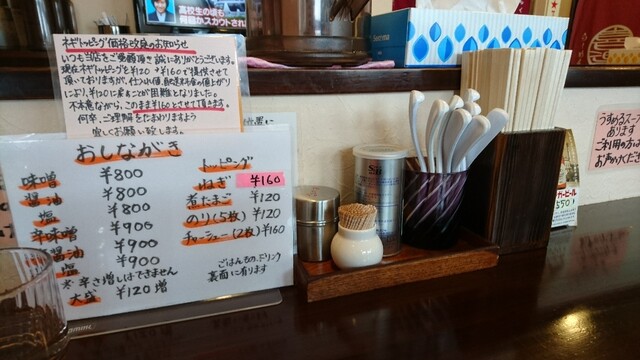 ネギトッピング価格改定のお知らせ
いつも当店をご愛顧頂き誠にありがとうございます。
現在ネギトッピングを¥120→¥160で提供させて
頂いておりますが、仕入れ値
により、¥120に戻すことが困難となりました。
不本意ながら、このまま¥160とさせて頂きます。
何卒、ご理解をたまわりますよう
宜しくお願い致します。
おしながき
味噌 ¥800
醤油 ¥800
塩 ¥800
辛味噌 ¥900
醤油 ¥900
塩 ¥900
※辛さ増しはできません
大盛 ¥120増
トッピング
ねぎ ¥160
煮たまご ¥120
のり(5枚) ¥120
チャーシュー(2枚) ¥160
ごはんもの、ドリンク
裏面に有ります
うすめるスープ
あります
ご利用の方は
お声かけくださ
高校生の頃も
何回かスカウトされ